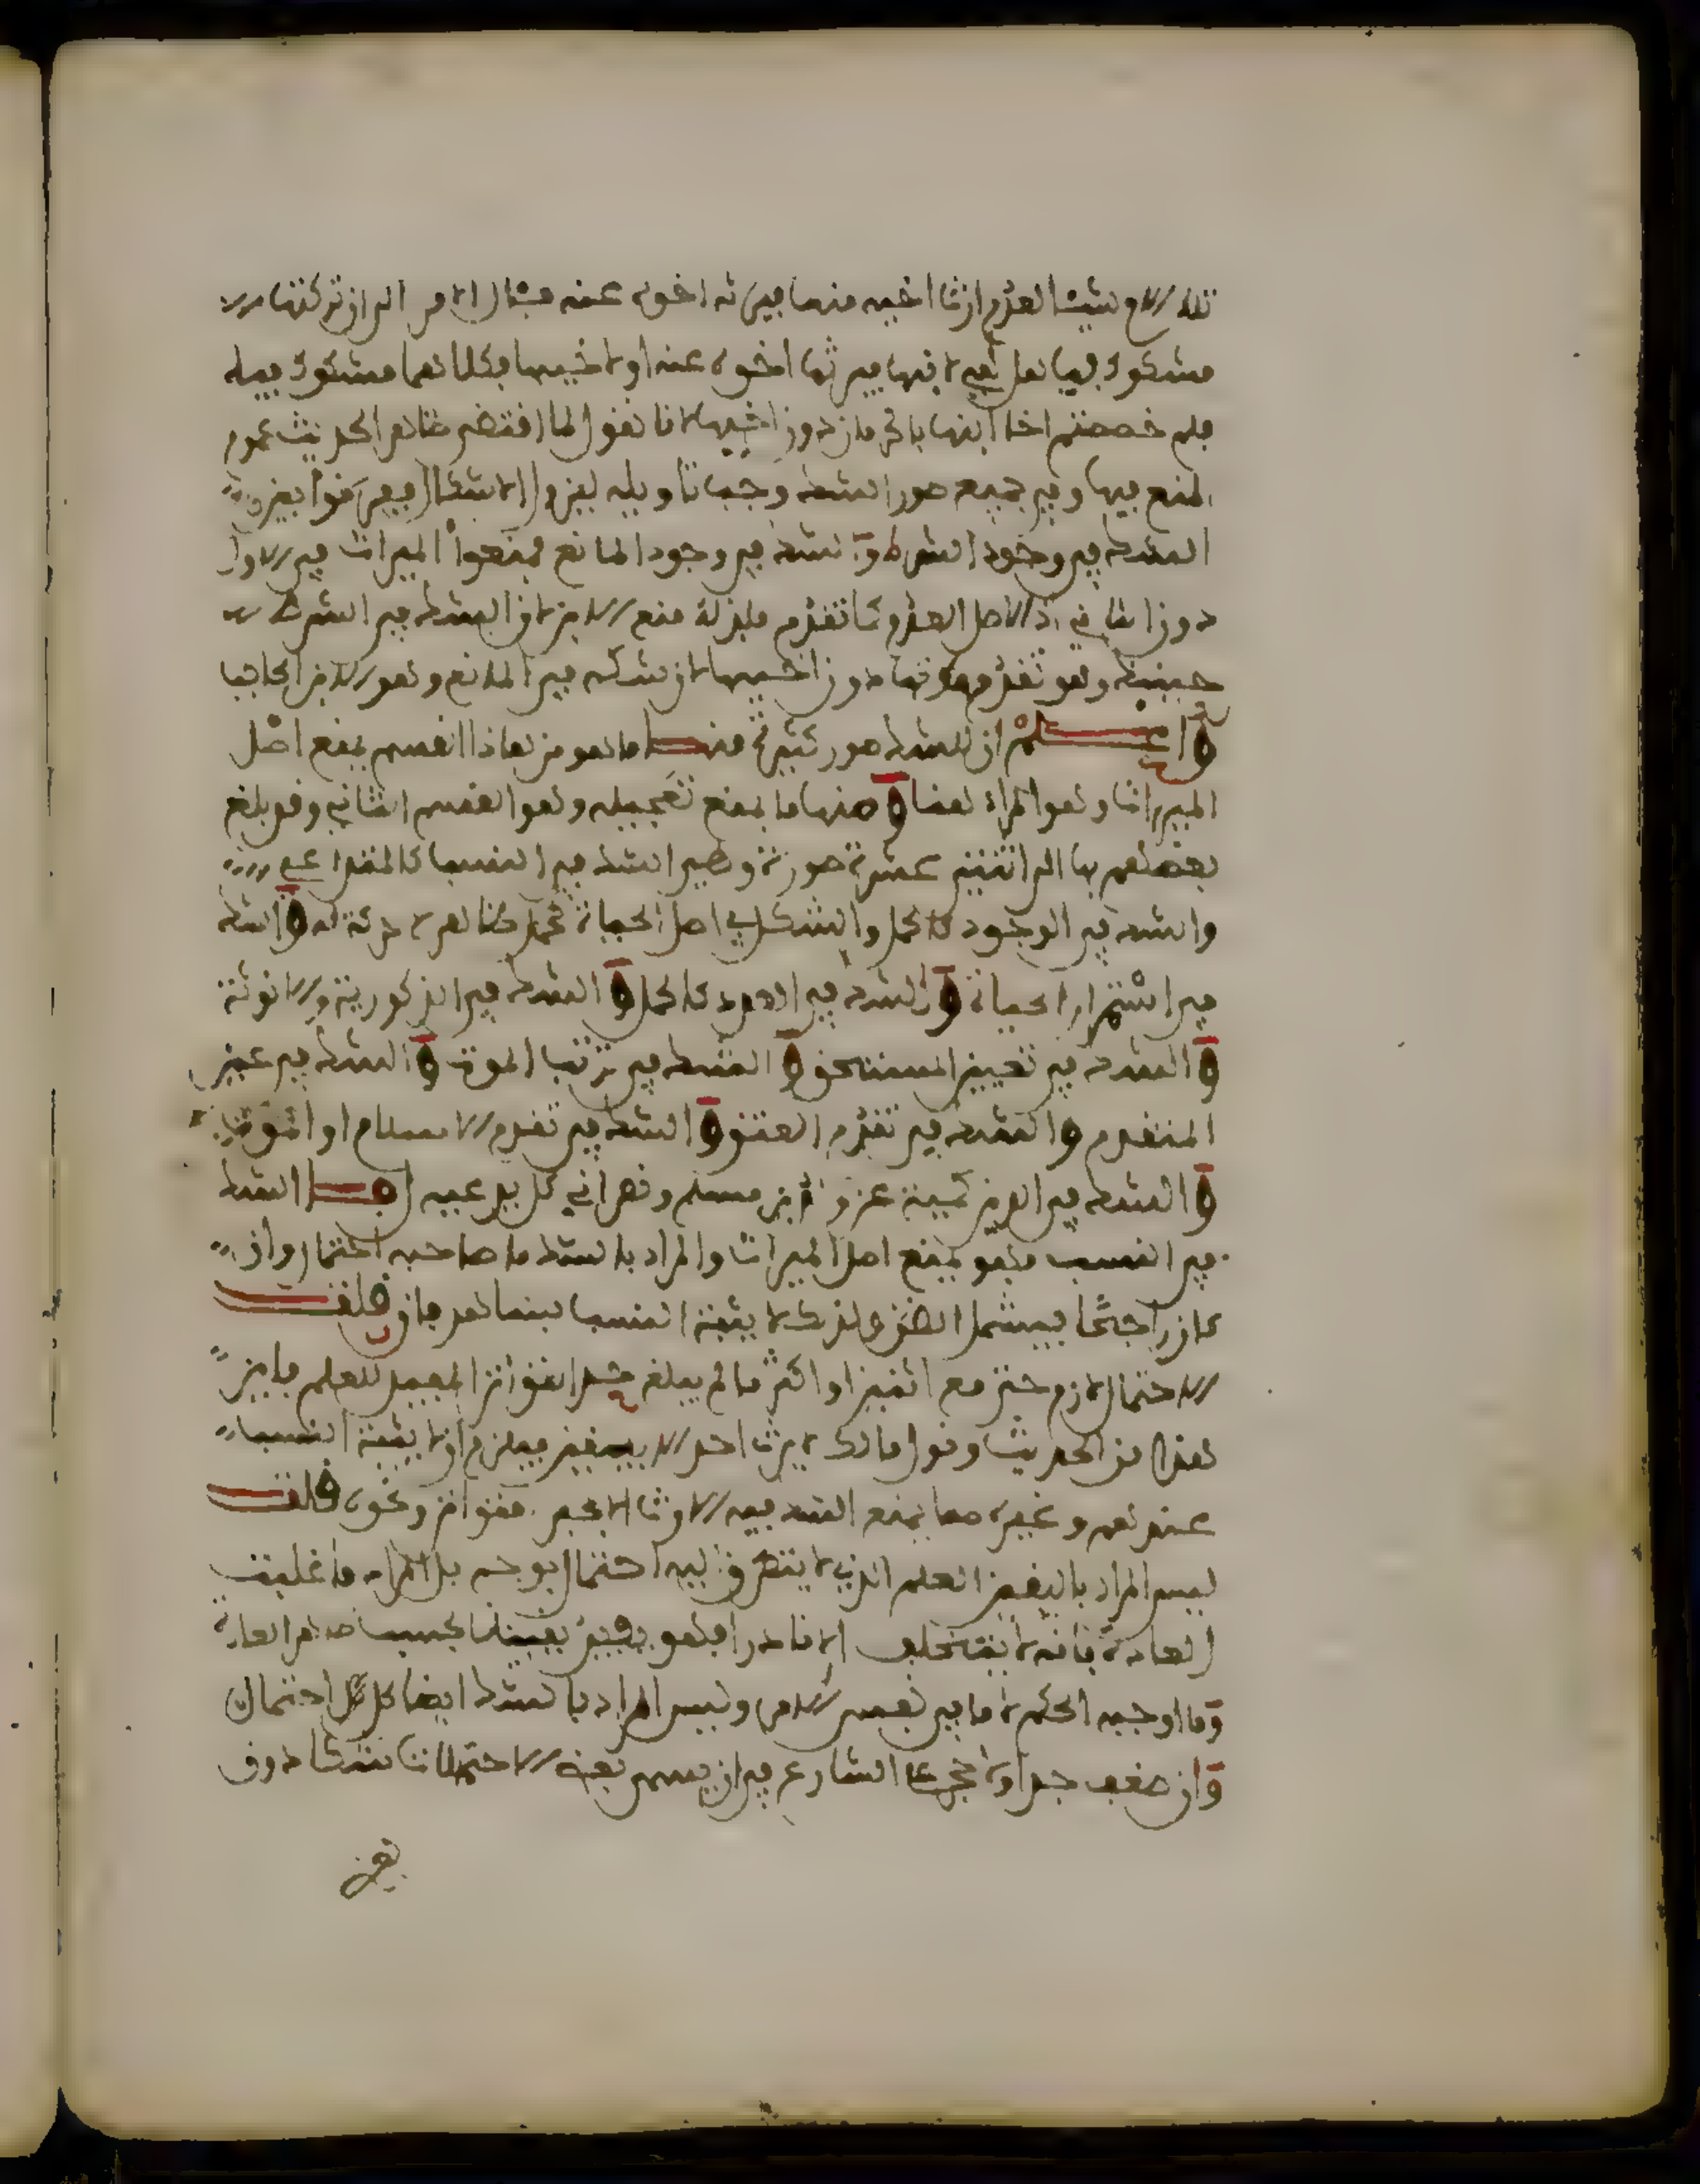 تلك الام شيئا لعدم ارث اخيه منها فيرثه اخوه عنه فمثال الامر الى ان تركتها
مشكوك فيها هل هي لابنها فيرثها اخوه عنه او لاخيها فكلاهما مشكوك فيه
فلم خصصتم اخا ابنها بالحرمان دون اخيها لانا نقول لما اقتضى ظاهر الحديث عموم
المنع فيها وفي جميع صور الشك وجب تاويله ليزول الاشكال ففرقوا بين
الشك في وجود الشرط والشك في وجود المانع فمنعوا الميراث في الاول
دون الثاني اذ الاصل العدم كما تقدم فلذلك منع الابن لان الشك في الشرط
حينئذ وهو تقدم موتها دون اخيها لان شكه في المانع وهو الابن الحاجب
واعلم ان للشك صور كثيرة منها ما هو من هذا القسم يمنع اصل
الميراث وهو المراد هنا ومنها ما يمنع تعجيله وهو القسم الثاني وقد بلغ
بعضهم بها الى اثنتي عشرة صورة وهي الشك في النسب كالمتداعى
والشك في الوجود كالحمل والشك في اصل الحياة كحمل ظاهر لا حركة له والشك
في استمرار الحياة والشك في العدد كالحمل والشك في الذكورية والانوثة
والشك في تعيين المستحق والشك في ترتب الموت والشك في عين
المتقدم والشك في تقدم العتق والشك في تقدم الاسلام او الموت
والشك في الدين كميت عن ابنين مسلم ونصراني كل يدعيه اما الشك
في النسب فهو يمنع اصل الميراث والمراد بالشك ما صاحبه احتمال وان
كان راجحا فيشمل الظن ولذلك لا يثبت النسب بشاهد فان قلت
الاحتمال لازم حتى مع اثنين او اكثر ما لم يبلغ حد التواتر المفيد للعلم فاين
هذا من الحديث وقول مالك لا يرث احد الا بيقين فيلزم ان لا يثبت النسب
عندهم وغيره مما يمنع الشك فيه الارث الا بخبر متواتر ونحوه قلت
ليس المراد باليقين العلم الذي لا يتطرق اليه احتمال بوجه بل المراد ما غلبت
العادة بانه لا يتخلف الا نادرا فهو يقين بحسب ظاهر العادة
وما اوجبه الحكم لا ما في نفس الامر وليس المراد بالشك ايضا كل احتمال
وان ضعف جدا ولا حجر على الشارع في ان يسمي بعض الاحتمالات شكا دون
بعض